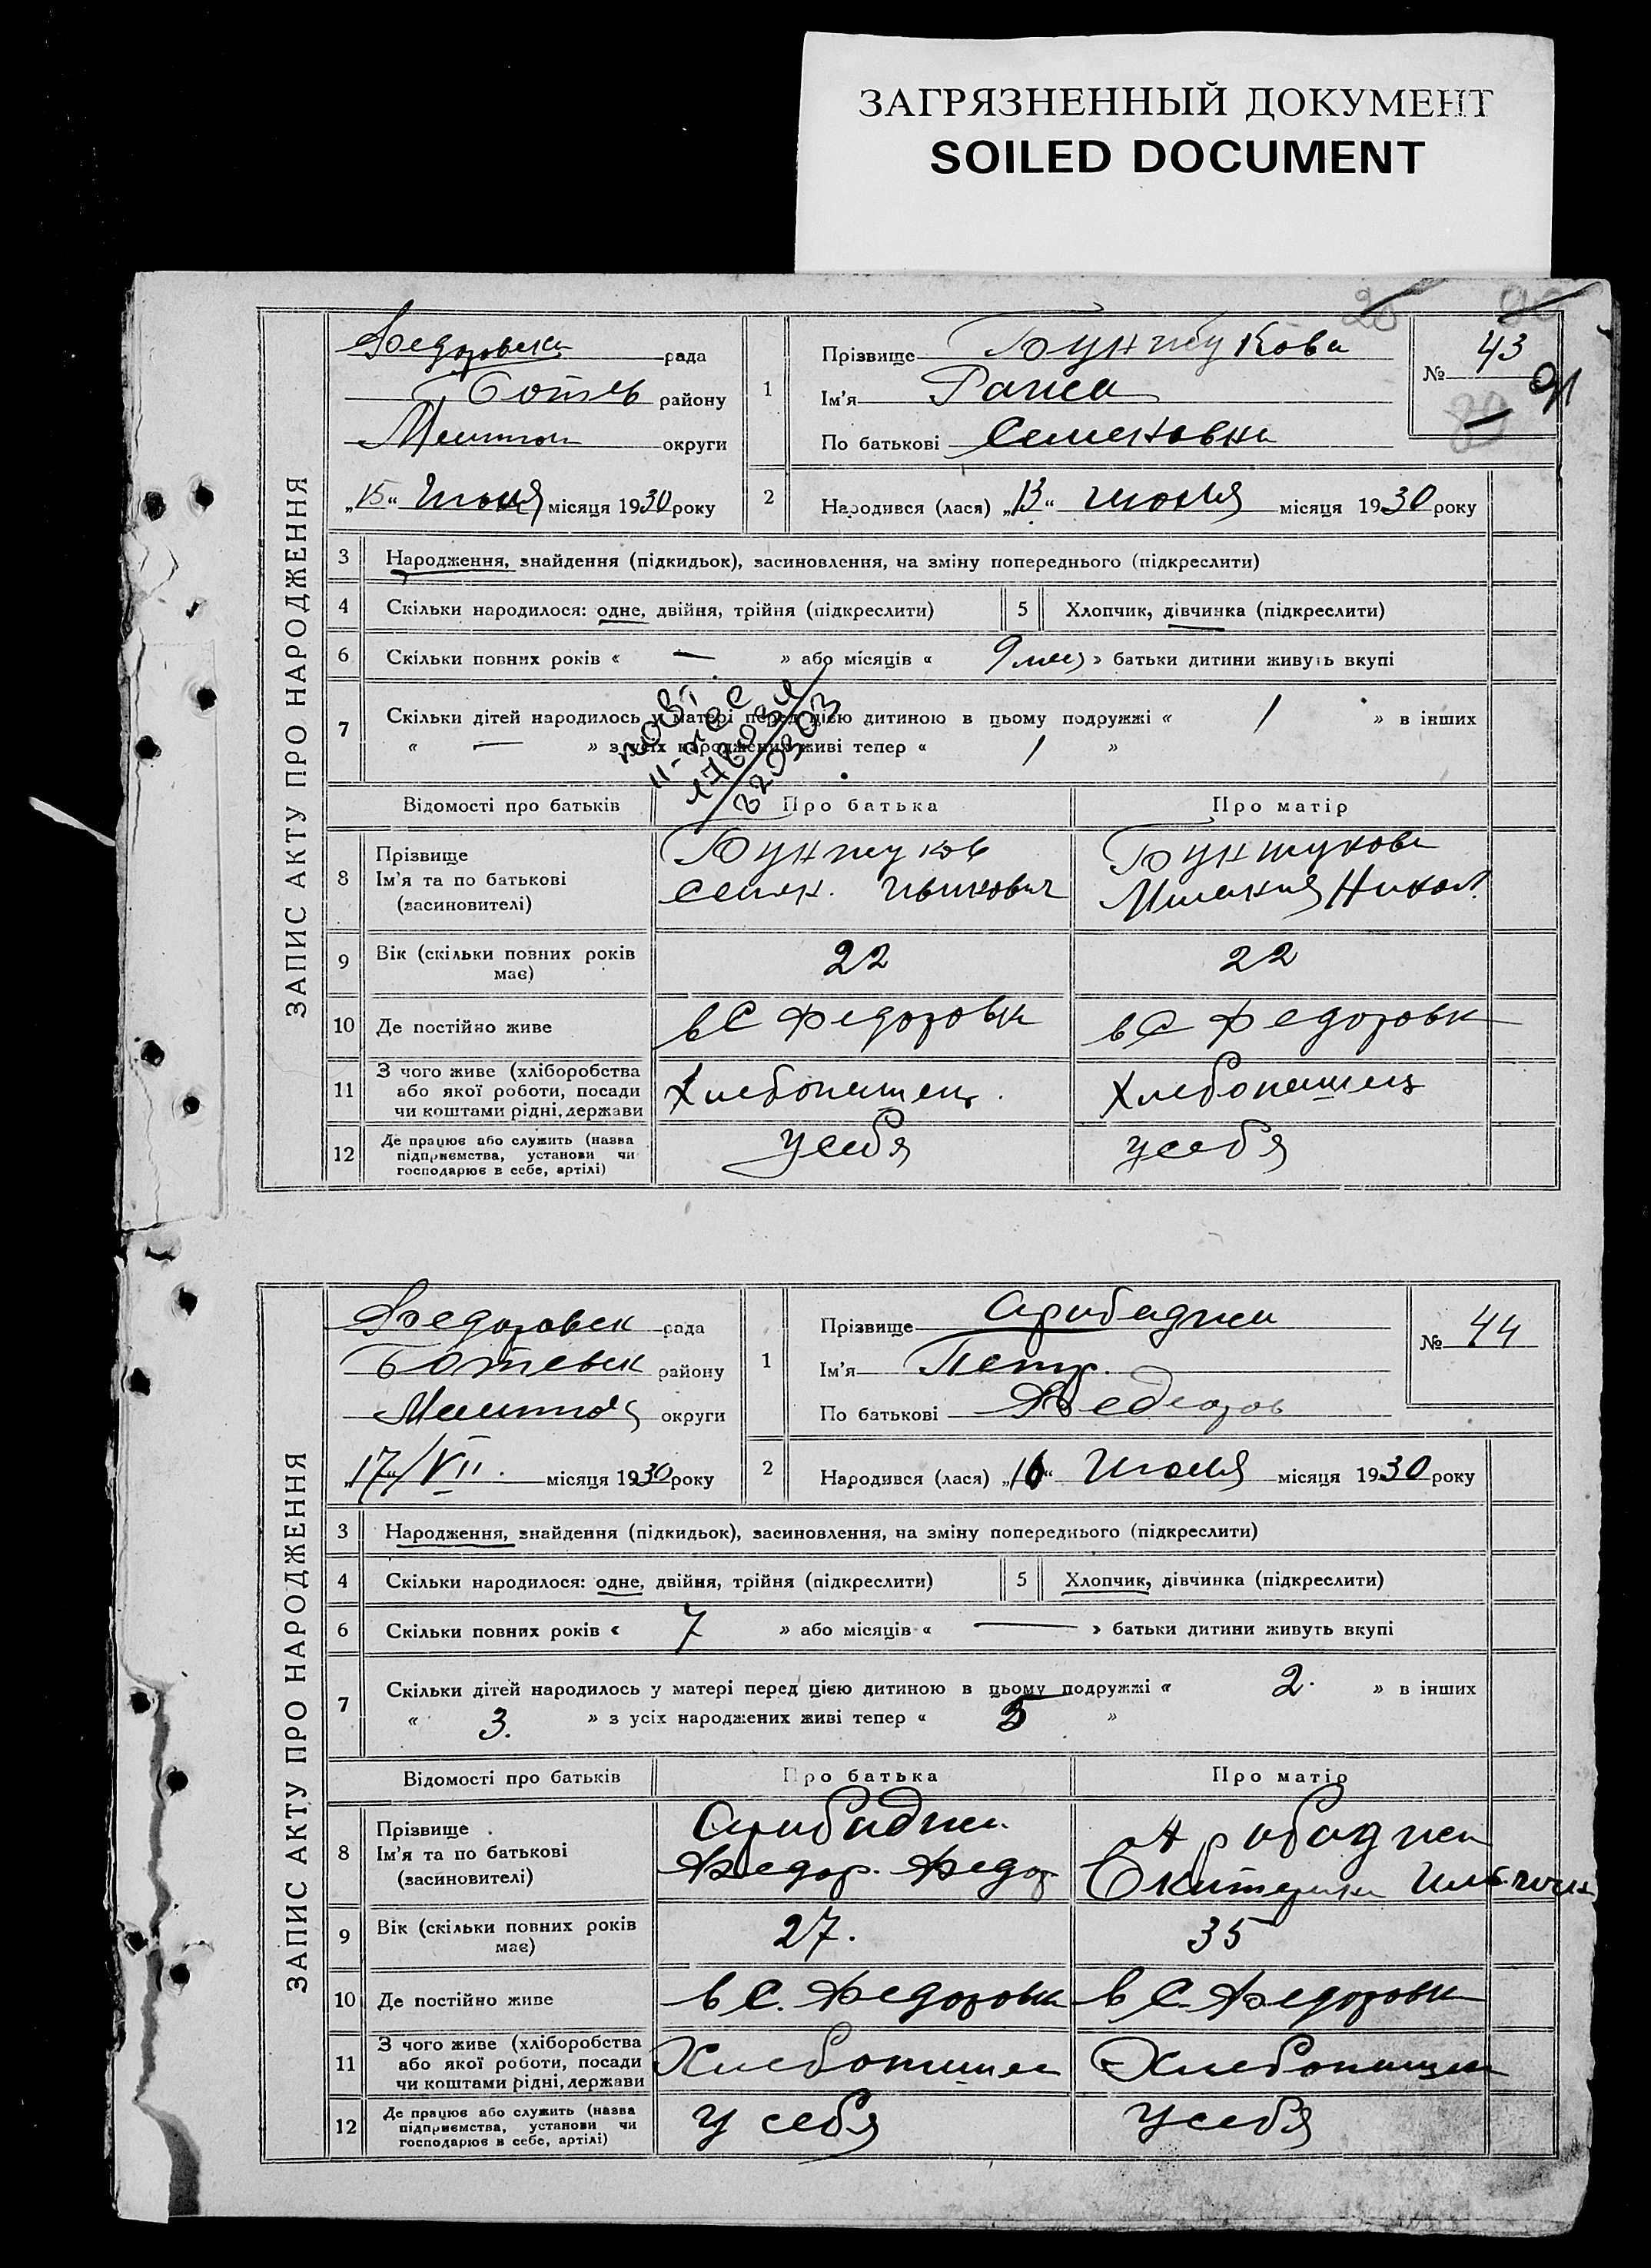 ЗАГРЯЗНЕННЫЙ ДОКУМЕНТ
SOILED DOCUMENT
ЗАПИС АКТУ ПРО НАРОДЖЕННЯ
Федоровск рада
Ботев району
округи
„15“ Июля місяця 1930 року
1 Прізвище Бунжукова
Ім'я Раиса
По батькові Семеновна
№ 43
91
2 Народився (лася) „13“ Июля місяця 1930 року
3 Народження, знайдення (підкидьок), засиновлення, на зміну попереднього (підкреслити)
4 Скільки народилося: одне, двійня, трійня (підкреслити) 5 Хлопчик, дівчинка (підкреслити)
6 Скільки повних років « — » або місяців « 9 мес » батьки дитини живуть вкупі
7 Скільки дітей народилось у матері перед цією дитиною в цьому подружжі « 1 » в інших
« — » з усіх народжених живі тепер « 1 »
Відомості про батьків Про батька Про матір
8 Прізвище Ім'я та по батькові (засиновителі)
Бунжуков Бунжукова
Семен. Никол.
9 Вік (скільки повних років має) 22 22
10 Де постійно живе в С Федоровка в С Федоровка
11 З чого живе (хліборобства або якої роботи, посади чи коштами рідні, держави Хлебопашец. Хлебопашец
12 Де працює або служить (назва підприємства, установи чи господарює в себе, артілі) у себя у себя
ЗАПИС АКТУ ПРО НАРОДЖЕННЯ
Федоровск рада
Ботевск району
округи
„17“/VII. місяця 1930 року
1 Прізвище Арабаджи
Ім'я Петр.
По батькові Федоров
№ 44
2 Народився (лася) „16“ Июля місяця 1930 року
3 Народження, знайдення (підкидьок), засиновлення, на зміну попереднього (підкреслити)
4 Скільки народилося: одне, двійня, трійня (підкреслити) 5 Хлопчик, дівчинка (підкреслити)
6 Скільки повних років « 7 » або місяців « — » батьки дитини живуть вкупі
7 Скільки дітей народилось у матері перед цією дитиною в цьому подружжі « 2. » в інших
« 3. » з усіх народжених живі тепер « 5 »
Відомості про батьків Про батька Про матір
8 Прізвище Ім'я та по батькові (засиновителі)
Арабаджи Арабаджи
Федор. Федор Екатерина
9 Вік (скільки повних років має) 27. 35
10 Де постійно живе в С. Федоровка в С. Федоровка
11 З чого живе (хліборобства або якої роботи, посади чи коштами рідні, держави Хлебопашец Хлебопашец
12 Де працює або служить (назва підприємства, установи чи господарює в себе, артілі) у себя у себя